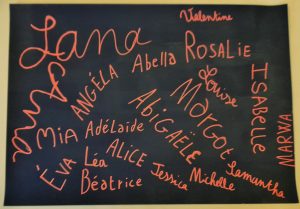 Valentine
Lana
Abella
ROSALIE
Anna
ANGÉLA
Louise
ISABELLE
MARWA
MIA
Adélaïde
ABIGAËLE
Margot
ÉVA
Léa
ALICE
Jessica
Michelle
Samantha
Béatrice